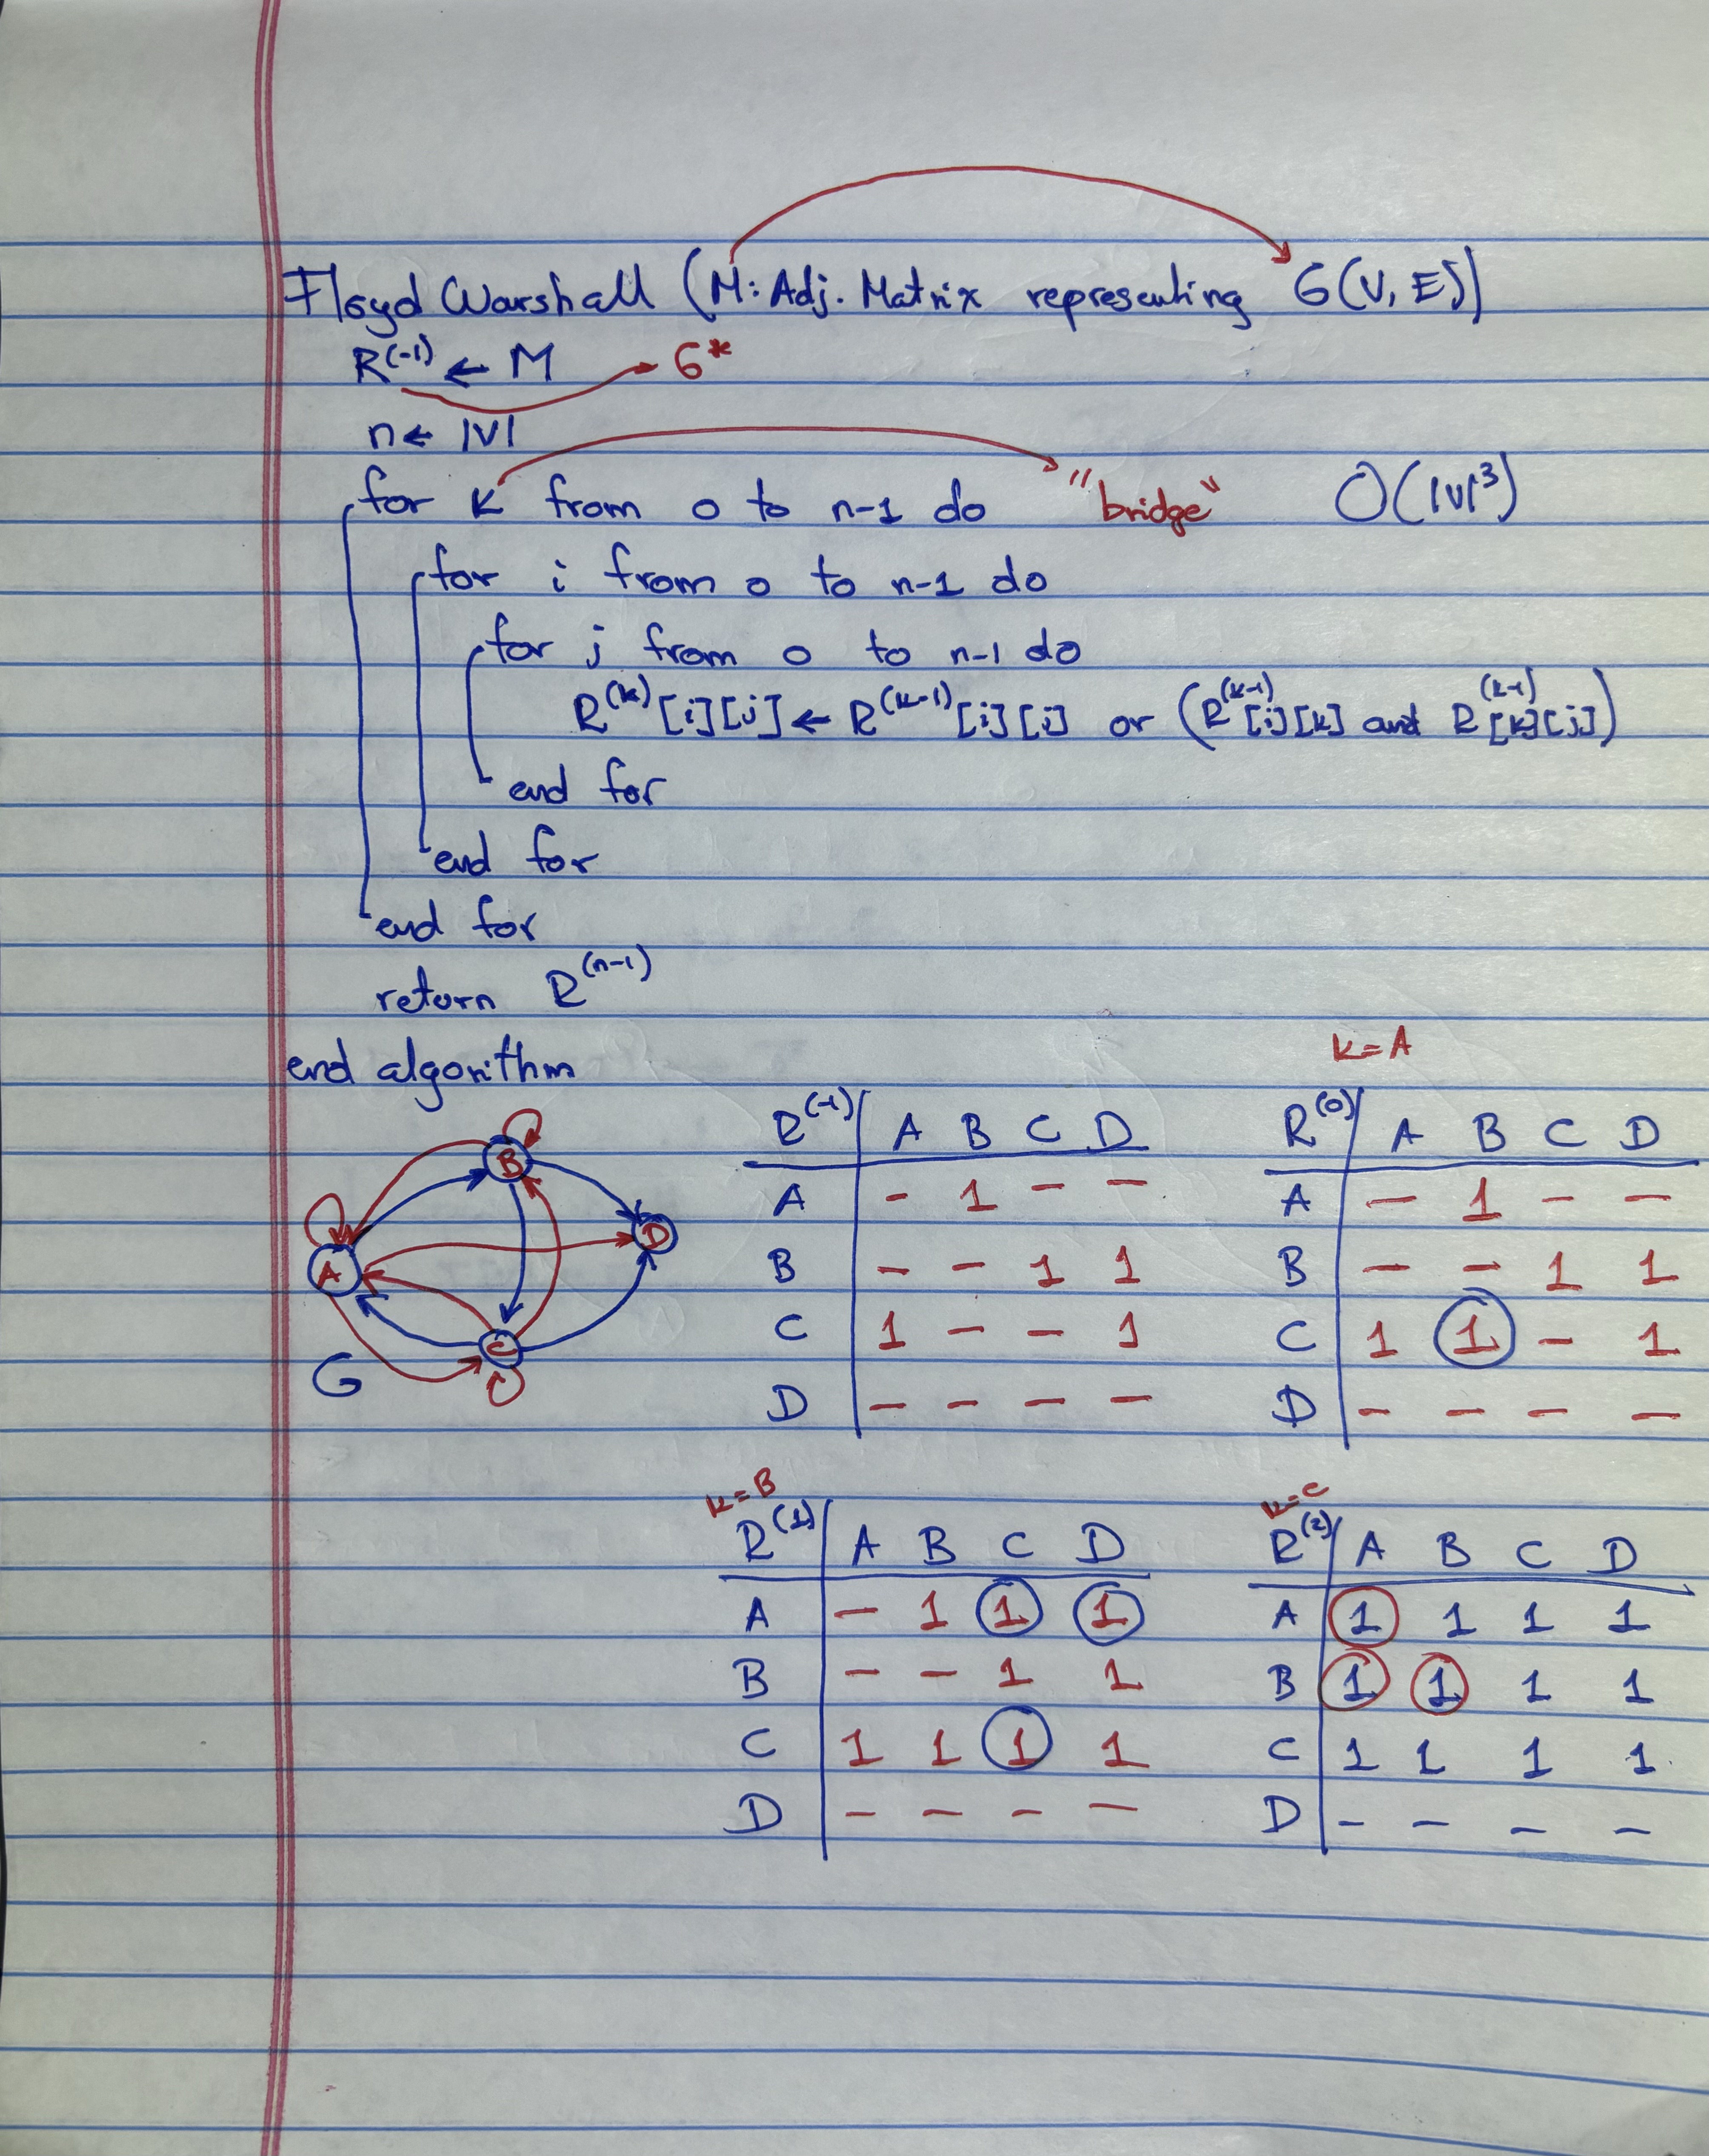 Floyd Warshall (M: Adj. Matrix representing G(V, E))
R^(-1) ← M → G*
n ← |V|
for k from 0 to n-1 do "bridge" O(|V|^3)
for i from 0 to n-1 do
for j from 0 to n-1 do
R^(k)[i][j] ← R^(k-1)[i][j] or (R^(k-1)[i][k] and R^(k-1)[k][j])
end for
end for
end for
return R^(n-1)
end algorithm
B
A
D
C
G
R^(-1) A B C D
A - 1 - -
B - - 1 1
C 1 - - 1
D - - - -
k=A
R^(0) A B C D
A - 1 - -
B - - 1 1
C 1 1 - 1
D - - - -
k=B
R^(1) A B C D
A - 1 1 1
B - - 1 1
C 1 1 1 1
D - - - -
k=C
R^(2) A B C D
A 1 1 1 1
B 1 1 1 1
C 1 1 1 1
D - - - -